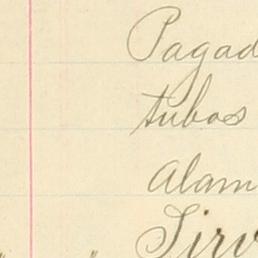 Pagad
tubos
Alam
Sirv
" "